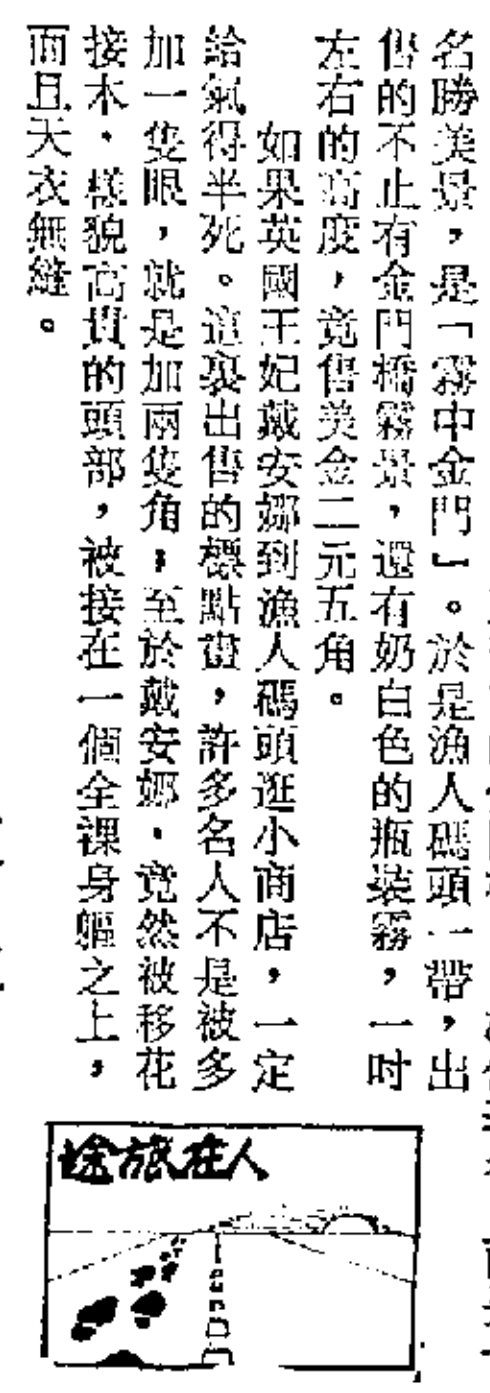 名勝美景，是「霧中金門」。於是漁人碼頭一帶，出
售的不止有金門橋霧景，還有奶白色的瓶裝霧，一吋
左右的高度，竟售美金二元五角。
如果英國王妃戴安娜到漁人碼頭逛小商店，一定
給氣得半死。這裏出售的標點畫，許多名人不是被多
加一隻眼，就是加兩隻角；至於戴安娜，竟然被移花
接木，樣貌高貴的頭部，被接在一個全裸身軀之上，
而且天衣無縫。
人在旅途